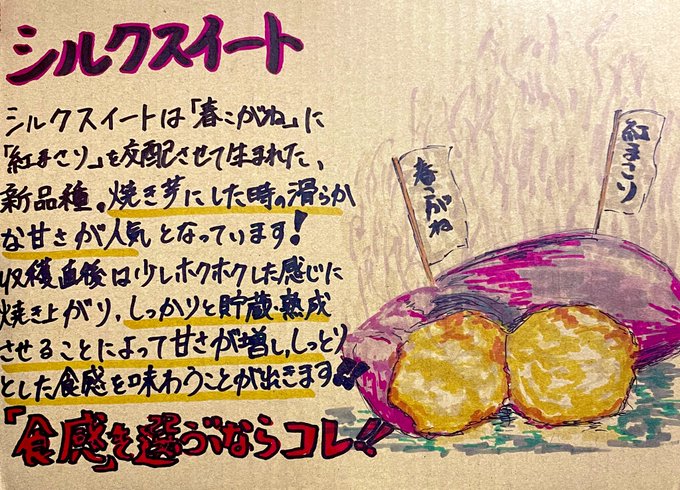 シルクスイート
シルクスイートは「春こがね」に
「紅まさり」を交配させて生まれた、
新品種。焼き芋にした時の滑らか
な甘さが人気となっています!
収穫直後は少しホクホクした感じに
焼き上がり、しっかりと貯蔵・熟成
させることによって甘さが増し、しっとり
とした食感を味わうことが出きます!!
「食感」を選ぶならコレ!!
春こがね
紅まさり